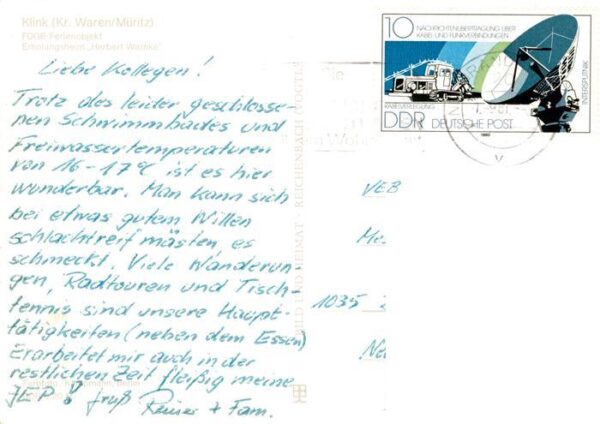 Klink (Kr. Waren/Müritz)
FDGB Ferienobjekt
Erholungsheim „Herbert Warnke"
Liebe Kollegen!
Trotz des leider geschlosse-
nen Schwimmbades und
Freiwassertemperaturen
von 16-17°C ist es hier
wunderbar. Man kann sich
bei etwas gutem Willen
schlachtreif mästen, es
schmeckt. Viele Wanderun-
gen, Radtouren und Tisch-
tennis sind unsere Haupt-
tätigkeiten (neben dem Essen)
Erarbeitet mir auch in der
restlichen Zeit fleißig meine
JEP! Gruß Reiner + Fam.
BILD UND HEIMAT · REICHENBACH (VOGTL
10
NACHRICHTENÜBERTRAGUNG ÜBER
KABEL UND FUNKVERBINDUNGEN
INTERSPUTNIK
KABELVERLEGUNG
DDR DEUTSCHE POST
1980
VEB
1035